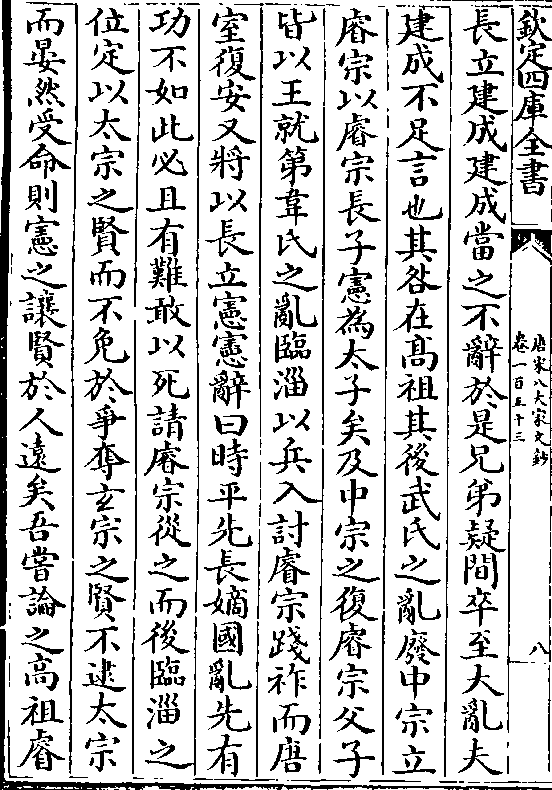 欽定四庫全書
唐宋八大家文鈔
卷一百五十三
八
長立建成建成當之不辭於是兄弟疑間卒至大亂夫
建成不足言也其咎在高祖其後武氏之亂廢中宗立
睿宗以睿宗長子憲為太子矣及中宗之復睿宗父子
皆以王就第韋氏之亂臨淄以兵入討睿宗踐祚而唐
室復安又將以長立憲憲辭曰時平先長嫡國亂先有
功不如此必且有難敢以死請睿宗從之而後臨淄之
位定以太宗之賢而不免於爭奪玄宗之賢不逮太宗
而晏然受命則憲之讓賢於人遠矣吾嘗論之高祖睿